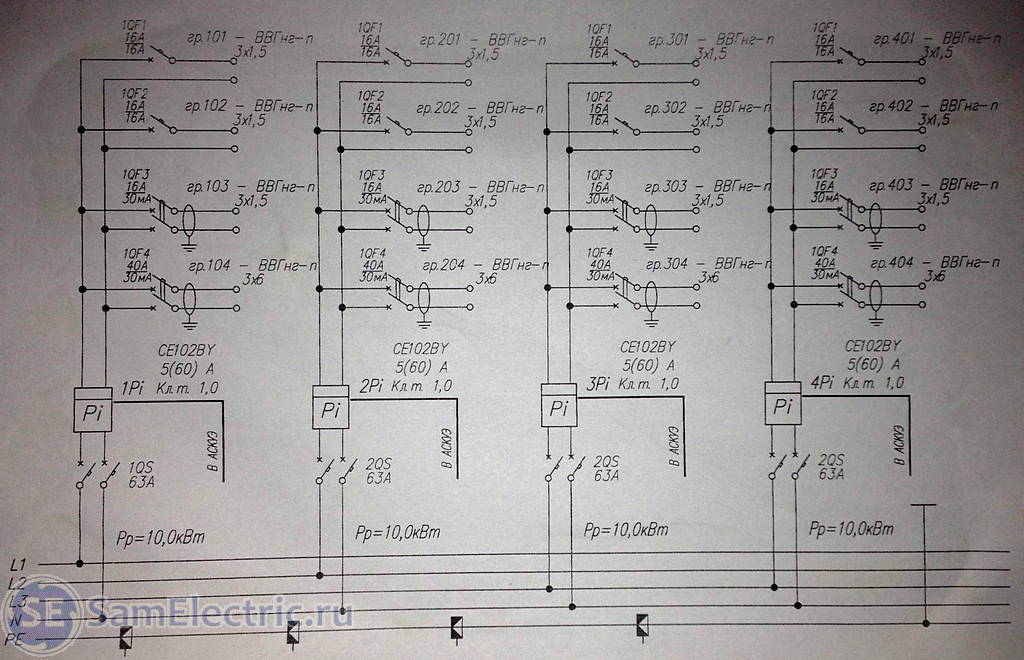 1QF1
16А
16А
гр.101 - ВВГнг-п
3х1,5
1QF2
16А
16А
гр.102 - ВВГнг-п
3х1,5
1QF3
16А
30мА
гр.103 - ВВГнг-п
3х1,5
1QF4
40А
30мА
гр.104 - ВВГнг-п
3х6
CE102BY
5(60) А
1Pi Кл.т. 1,0
Pi
В АСКУЭ
1QS
63А
Рр=10,0кВт
1QF1
16А
16А
гр.201 - ВВГнг-п
3х1,5
1QF2
16А
16А
гр.202 - ВВГнг-п
3х1,5
1QF3
16А
30мА
гр.203 - ВВГнг-п
3х1,5
1QF4
40А
30мА
гр.204 - ВВГнг-п
3х6
CE102BY
5(60) А
2Pi Кл.т. 1,0
Pi
В АСКУЭ
2QS
63А
Рр=10,0кВт
1QF1
16А
16А
гр.301 - ВВГнг-п
3х1,5
1QF2
16А
16А
гр.302 - ВВГнг-п
3х1,5
1QF3
16А
30мА
гр.303 - ВВГнг-п
3х1,5
1QF4
40А
30мА
гр.304 - ВВГнг-п
3х6
CE102BY
5(60) А
3Pi Кл.т. 1,0
Pi
В АСКУЭ
2QS
63А
Рр=10,0кВт
1QF1
16А
16А
гр.401 - ВВГнг-п
3х1,5
1QF2
16А
16А
гр.402 - ВВГнг-п
3х1,5
1QF3
16А
30мА
гр.403 - ВВГнг-п
3х1,5
1QF4
40А
30мА
гр.404 - ВВГнг-п
3х6
CE102BY
5(60) А
4Pi Кл.т. 1,0
Pi
В АСКУЭ
2QS
63А
Рр=10,0кВт
L1
L2
L3
N
PE
SE SamElectric.ru